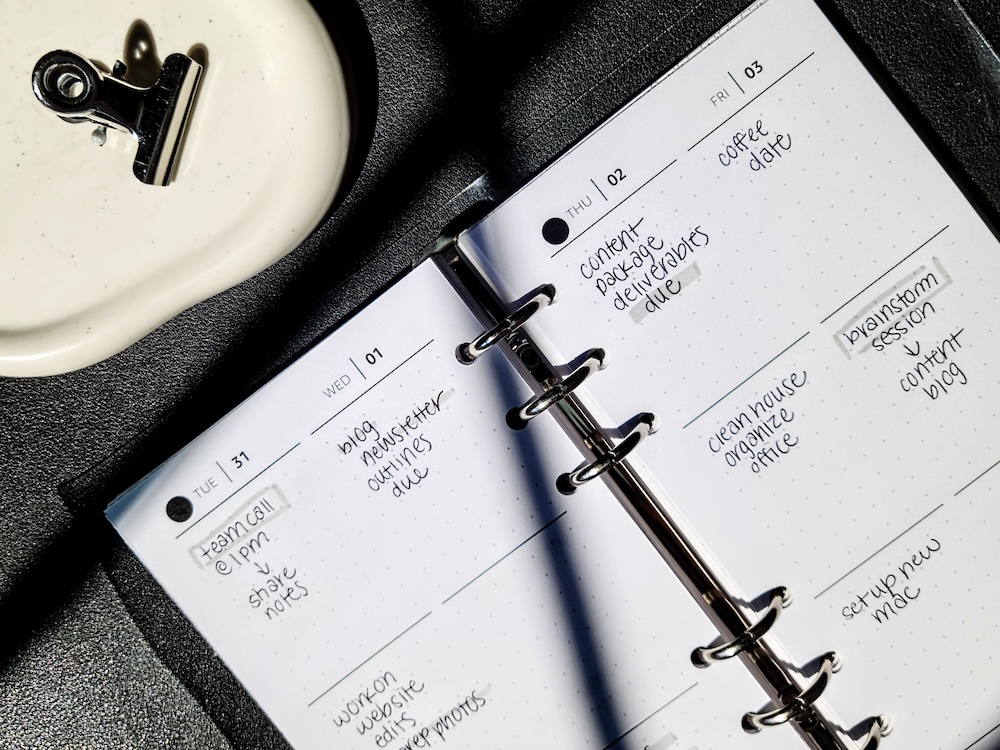 TUE | 31
team call
@ 1pm
↓
share
notes
WED | 01
blog
newsletter
outlines
due
work on
website
edits
prep photos
THU | 02
content
package
deliverables
due
clean house
organize
office
FRI | 03
coffee
date
brainstorm
session
↓
content
blog
set up new
mac